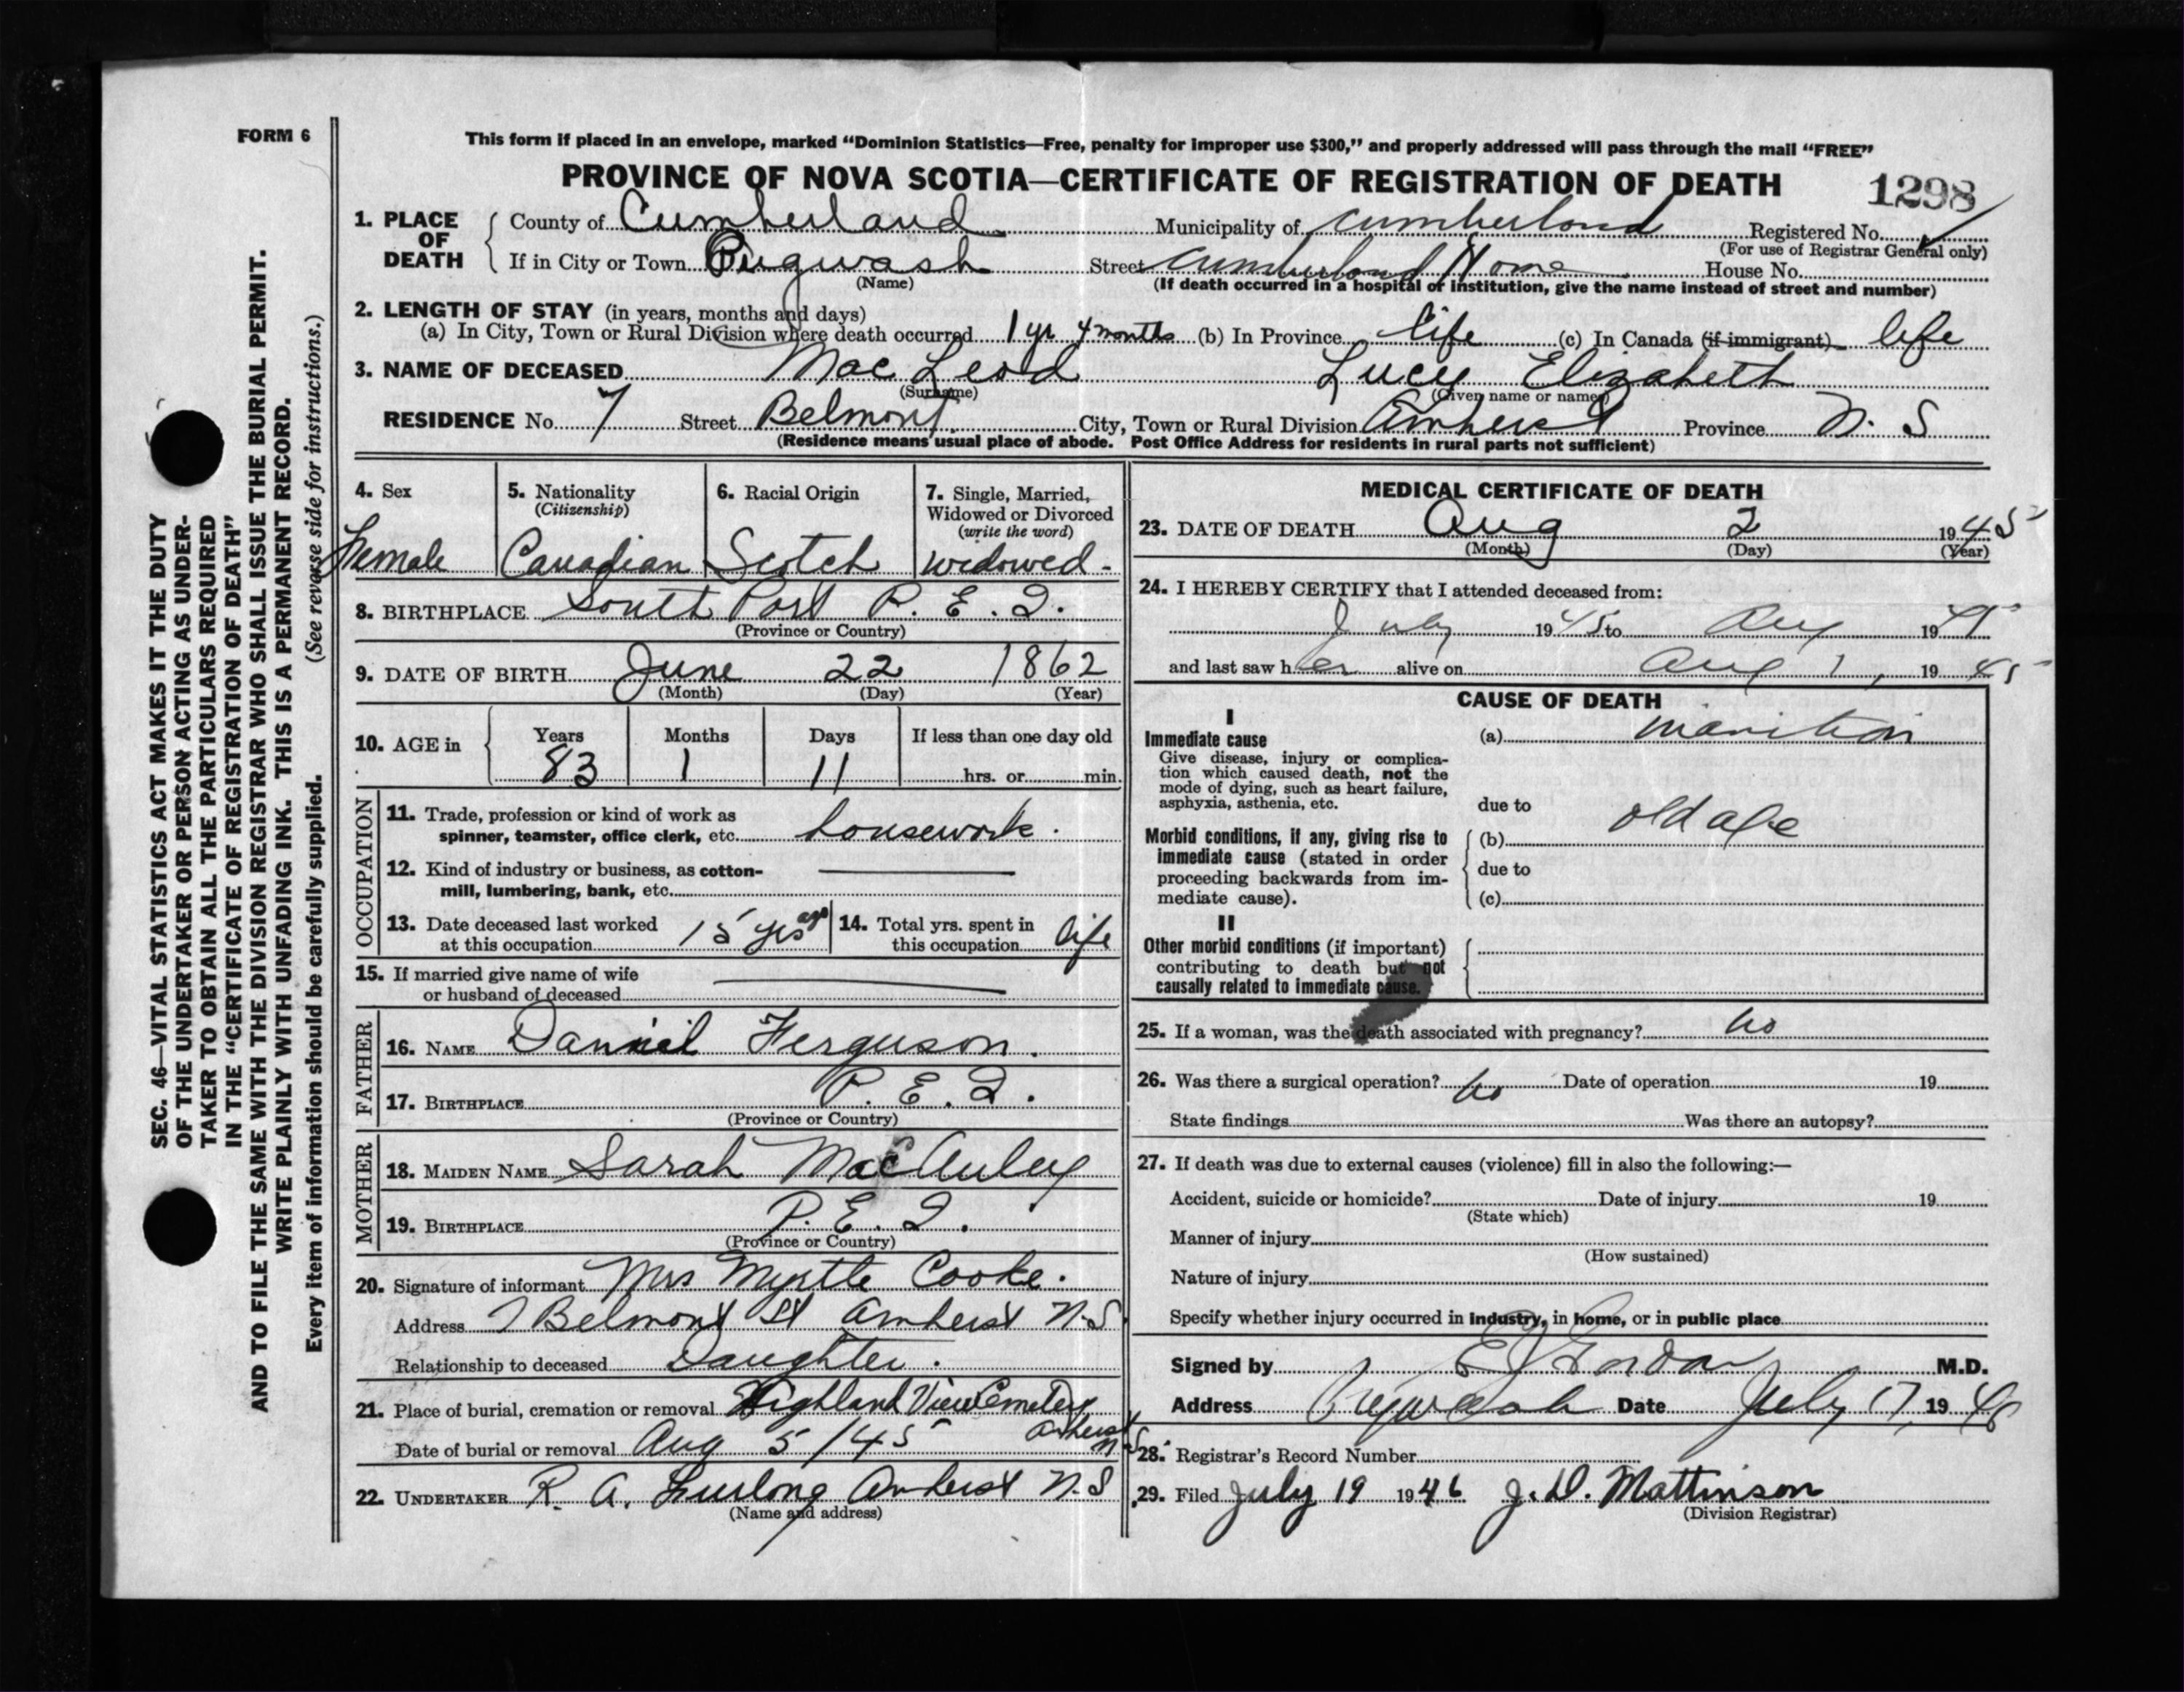 FORM 6
This form if placed in an envelope, marked “Dominion Statistics—Free, penalty for improper use $300,” and properly addressed will pass through the mail “FREE”
PROVINCE OF NOVA SCOTIA—CERTIFICATE OF REGISTRATION OF DEATH
1298
1. PLACE OF DEATH
County of Cumberland Municipality of Cumberland Registered No.
(For use of Registrar General only)
If in City or Town Pugwash Street Cumberland Home House No.
(Name) (If death occurred in a hospital or institution, give the name instead of street and number)
2. LENGTH OF STAY (in years, months and days)
(a) In City, Town or Rural Division where death occurred 1 yr 4 months (b) In Province life (c) In Canada (if immigrant) life
3. NAME OF DECEASED Mac Leod Lucy Elizabeth
(Surname) (Given name or names)
RESIDENCE No. 7 Street Belmont City, Town or Rural Division Amherst Province N. S
(Residence means usual place of abode. Post Office Address for residents in rural parts not sufficient)
4. Sex
Female
5. Nationality
(Citizenship)
Canadian
6. Racial Origin
Scotch
7. Single, Married,
Widowed or Divorced
(write the word)
widowed -
8. BIRTHPLACE South Port P. E. I.
(Province or Country)
9. DATE OF BIRTH June 22 1862
(Month) (Day) (Year)
10. AGE in
Years Months Days If less than one day old
83 1 11 hrs. or min.
OCCUPATION
11. Trade, profession or kind of work as
spinner, teamster, office clerk, etc. housework.
12. Kind of industry or business, as cotton-
mill, lumbering, bank, etc.
13. Date deceased last worked
at this occupation 15 yrs ago
14. Total yrs. spent in
this occupation life
15. If married give name of wife
or husband of deceased
FATHER
16. NAME Daniel Ferguson.
17. BIRTHPLACE P. E. I.
(Province or Country)
MOTHER
18. MAIDEN NAME Sarah MacAuley
19. BIRTHPLACE P. E. I.
(Province or Country)
20. Signature of informant Mrs Myrtle Cooke.
Address 7 Belmont St Amherst N.S.
Relationship to deceased Daughter.
21. Place of burial, cremation or removal Highland View Cemetery
Amherst N.S.
Date of burial or removal Aug 5/45
22. UNDERTAKER R. A. Furlong Amherst N.S
(Name and address)
MEDICAL CERTIFICATE OF DEATH
23. DATE OF DEATH Aug 2 1945
(Month) (Day) (Year)
24. I HEREBY CERTIFY that I attended deceased from:
July 1945 to Aug 1945
and last saw her alive on Aug 1, 1945
CAUSE OF DEATH
I
Immediate cause
Give disease, injury or complica-
tion which caused death, not the
mode of dying, such as heart failure,
asphyxia, asthenia, etc.
(a) inanition
due to
Morbid conditions, if any, giving rise to
immediate cause (stated in order
proceeding backwards from im-
mediate cause).
(b) old age
due to
(c)
II
Other morbid conditions (if important)
contributing to death but not
causally related to immediate cause.
25. If a woman, was the death associated with pregnancy? No
26. Was there a surgical operation? No Date of operation 19
State findings Was there an autopsy?
27. If death was due to external causes (violence) fill in also the following:—
Accident, suicide or homicide? Date of injury 19
(State which)
Manner of injury
(How sustained)
Nature of injury
Specify whether injury occurred in industry, in home, or in public place
Signed by M.D.
Address Pugwash Date July 17, 1946
28. Registrar's Record Number
29. Filed July 19 1946 J. D. Mattinson
(Division Registrar)
SEC. 46—VITAL STATISTICS ACT MAKES IT THE DUTY
OF THE UNDERTAKER OR PERSON ACTING AS UNDER-
TAKER TO OBTAIN ALL THE PARTICULARS REQUIRED
IN THE “CERTIFICATE OF REGISTRATION OF DEATH”
AND TO FILE THE SAME WITH THE DIVISION REGISTRAR WHO SHALL ISSUE THE BURIAL PERMIT.
WRITE PLAINLY WITH UNFADING INK. THIS IS A PERMANENT RECORD.
Every item of information should be carefully supplied. (See reverse side for instructions.)